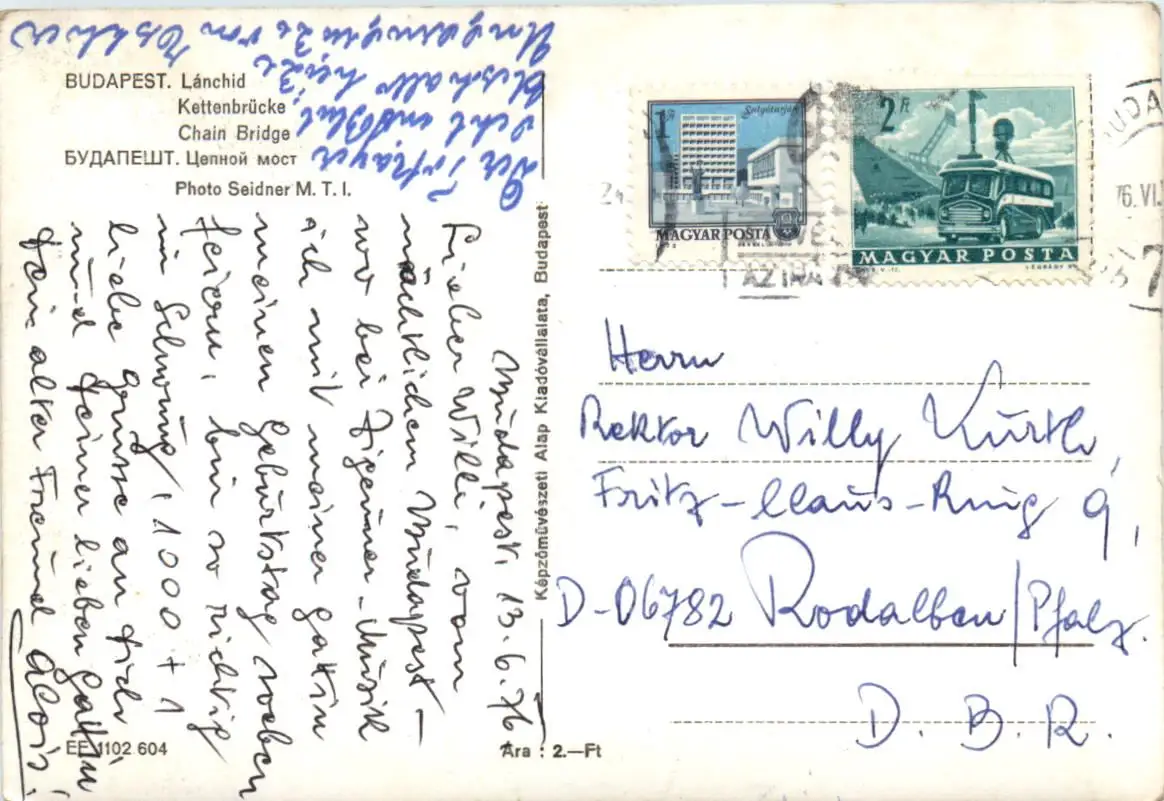 BUDAPEST. Lánchid
Kettenbrücke
Chain Bridge
БУДАПЕШТ. Цепной мост
Photo Seidner M. T. I.
Budapest, 13.6.76
Lieber Willi, vom
nächtlichen Budapest –
wo bei Zigeuner-Musik
ich mit meiner Gattin
meinen Geburtstag soeben
feiern, bin so richtig
in Schwung, 1000 + 1
liebe Grüsse an Dich
und Deiner lieben Gattin
Dein alter Freund Alois!
Der
Ungarn
von
EF 1102 604
Ára : 2.—Ft
Képzőművészeti Alap Kiadóvállalata, Budapest
1 Ft
Salgótarján
MAGYAR POSTA
2 Ft
MAGYAR POSTA
BUDA
76. VI.
7
AZ IRÁ
Herrn
Rektor Willy Kürth,
Fritz-Claus-Ring 9,
D-06782 Rodalben/Pfalz.
D. B. R.